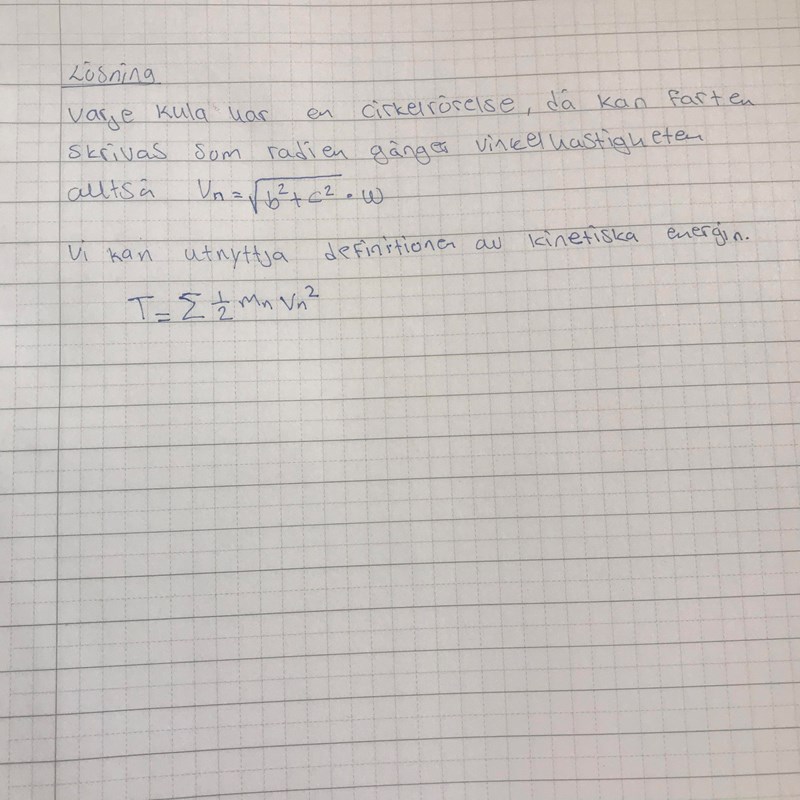 Lösning
varje kula har en cirkelrörelse, då kan farten
skrivas som radien gånger vinkelhastigheten
alltså Vn = √(b² + c²) · ω
Vi kan utnyttja definitionen av kinetiska energin.
T = Σ ½ mn Vn²